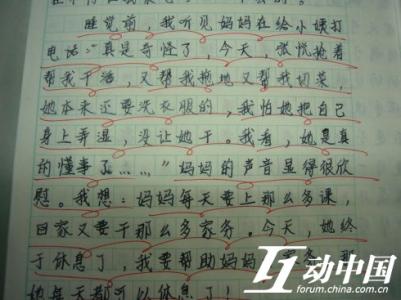 睡觉前，我听见妈妈在给小姨打
电话："真是奇怪了，今天，悦抢着
帮我干活，又帮我拖地又帮我切菜，
她本来还要洗衣服的，我怕她把自己
身上弄湿，没让她干。我看，她是真
的懂事了……"妈妈的声音显得很欣
慰。我想：妈妈每天要上那么多课，
回家又要干那么多家务。今天，她终
于休息了，我要帮助妈妈
她每天都可以休息了！
互动中国
forum.china.com